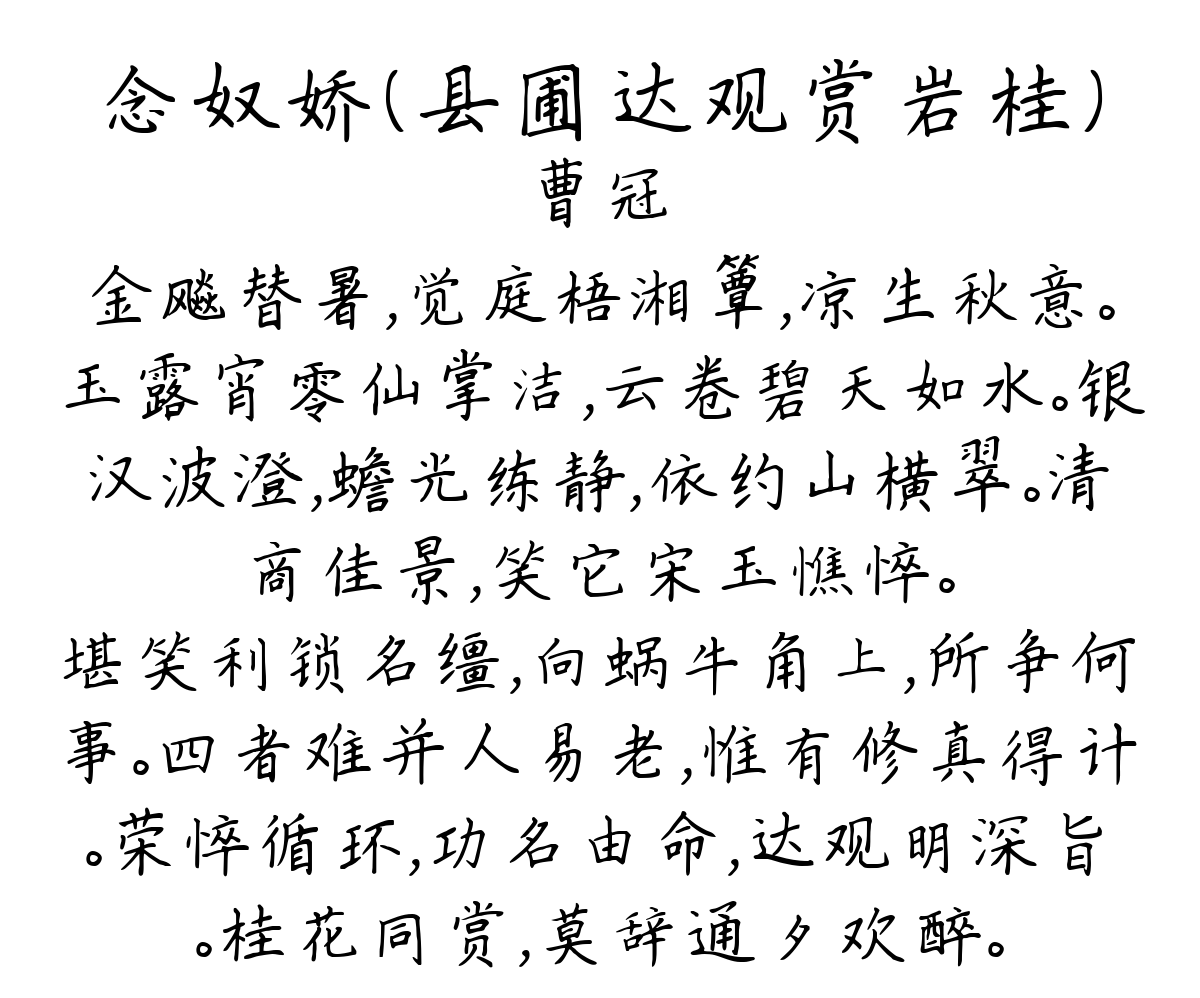 念奴娇(县圃达观赏岩桂)
曹冠
金飚替暑,觉庭梧湘簟,凉生秋意。
玉露宵零仙掌洁,云卷碧天如水。银
汉波澄,蟾光练静,依约山横翠。清
商佳景,笑它宋玉憔悴。
堪笑利锁名缰,向蜗牛角上,所争何
事。四者难并人易老,惟有修真得计
。荣悴循环,功名由命,达观明深旨
。桂花同赏,莫辞通夕欢醉。